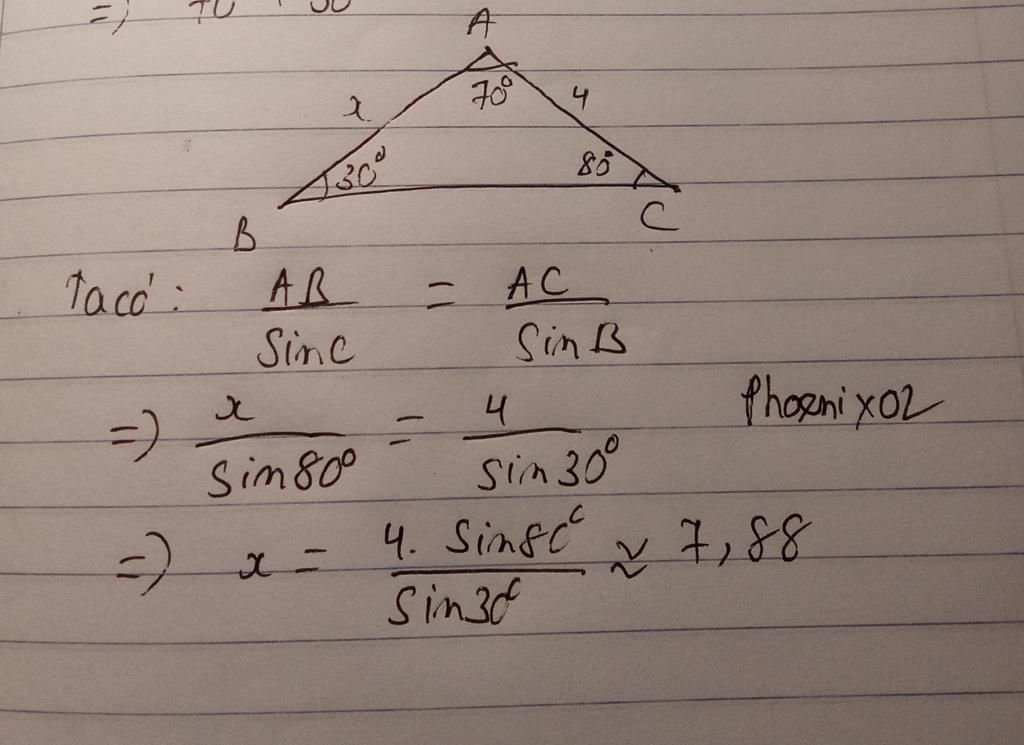 A
x 70° 4
30° 80°
B C
Ta có: AB/SinC = AC/SinB
=> x/Sin80° = 4/sin30° Phoenix02
=> x = 4. Sin80°/Sin30° ≈ 7,88